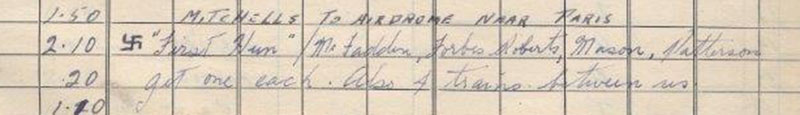 1.50 MITCHELLS TO AIRDROME NEAR PARIS
2.10 卐 "First Hun" / McFadden, Forbes Roberts, Mason, Patterson
.20 get one each. Also 4 trains between us.
1.20